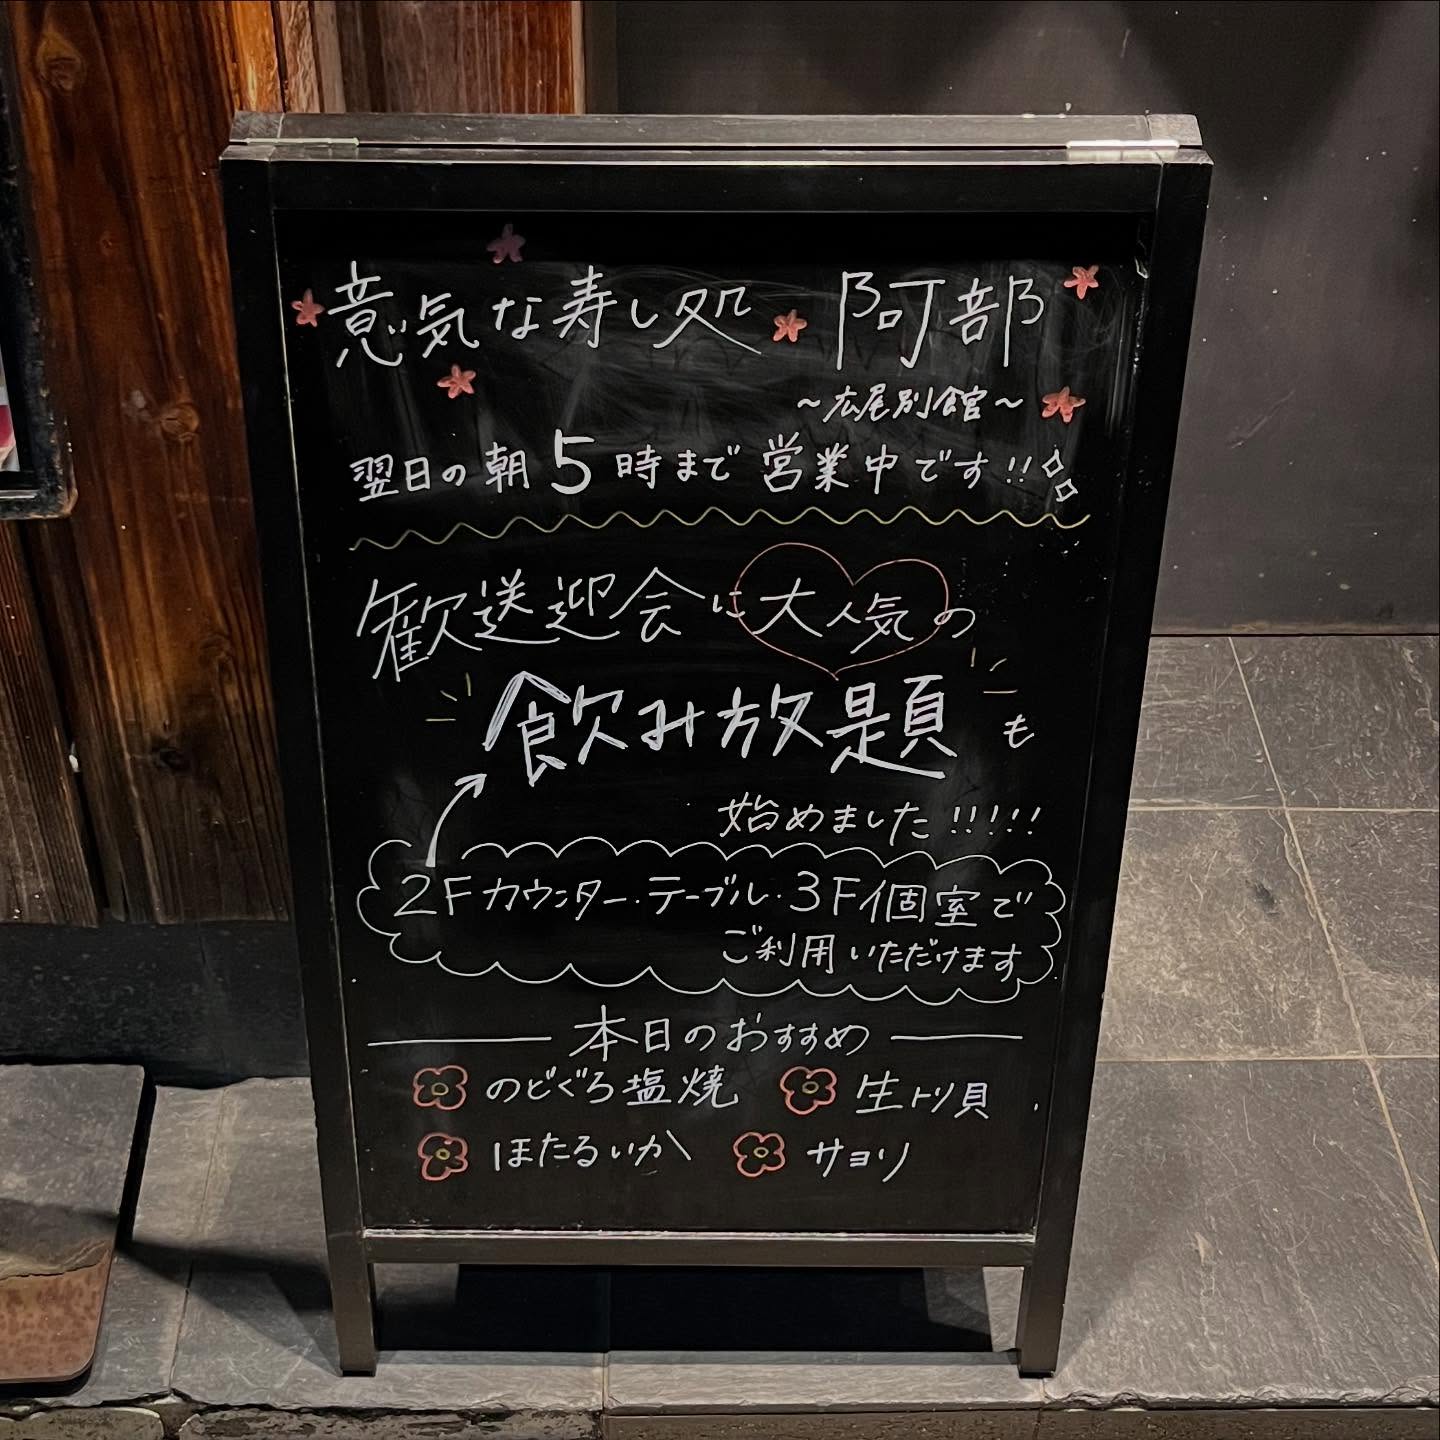 意気な寿し処 阿部
～広尾別館～
翌日の朝5時まで営業中です!!
歓送迎会に大人気の
飲み放題も
始めました!!!!!
2Fカウンター・テーブル・3F個室で
ご利用いただけます
本日のおすすめ
のどぐろ塩焼 生トリ貝
ほたるいか サヨリ